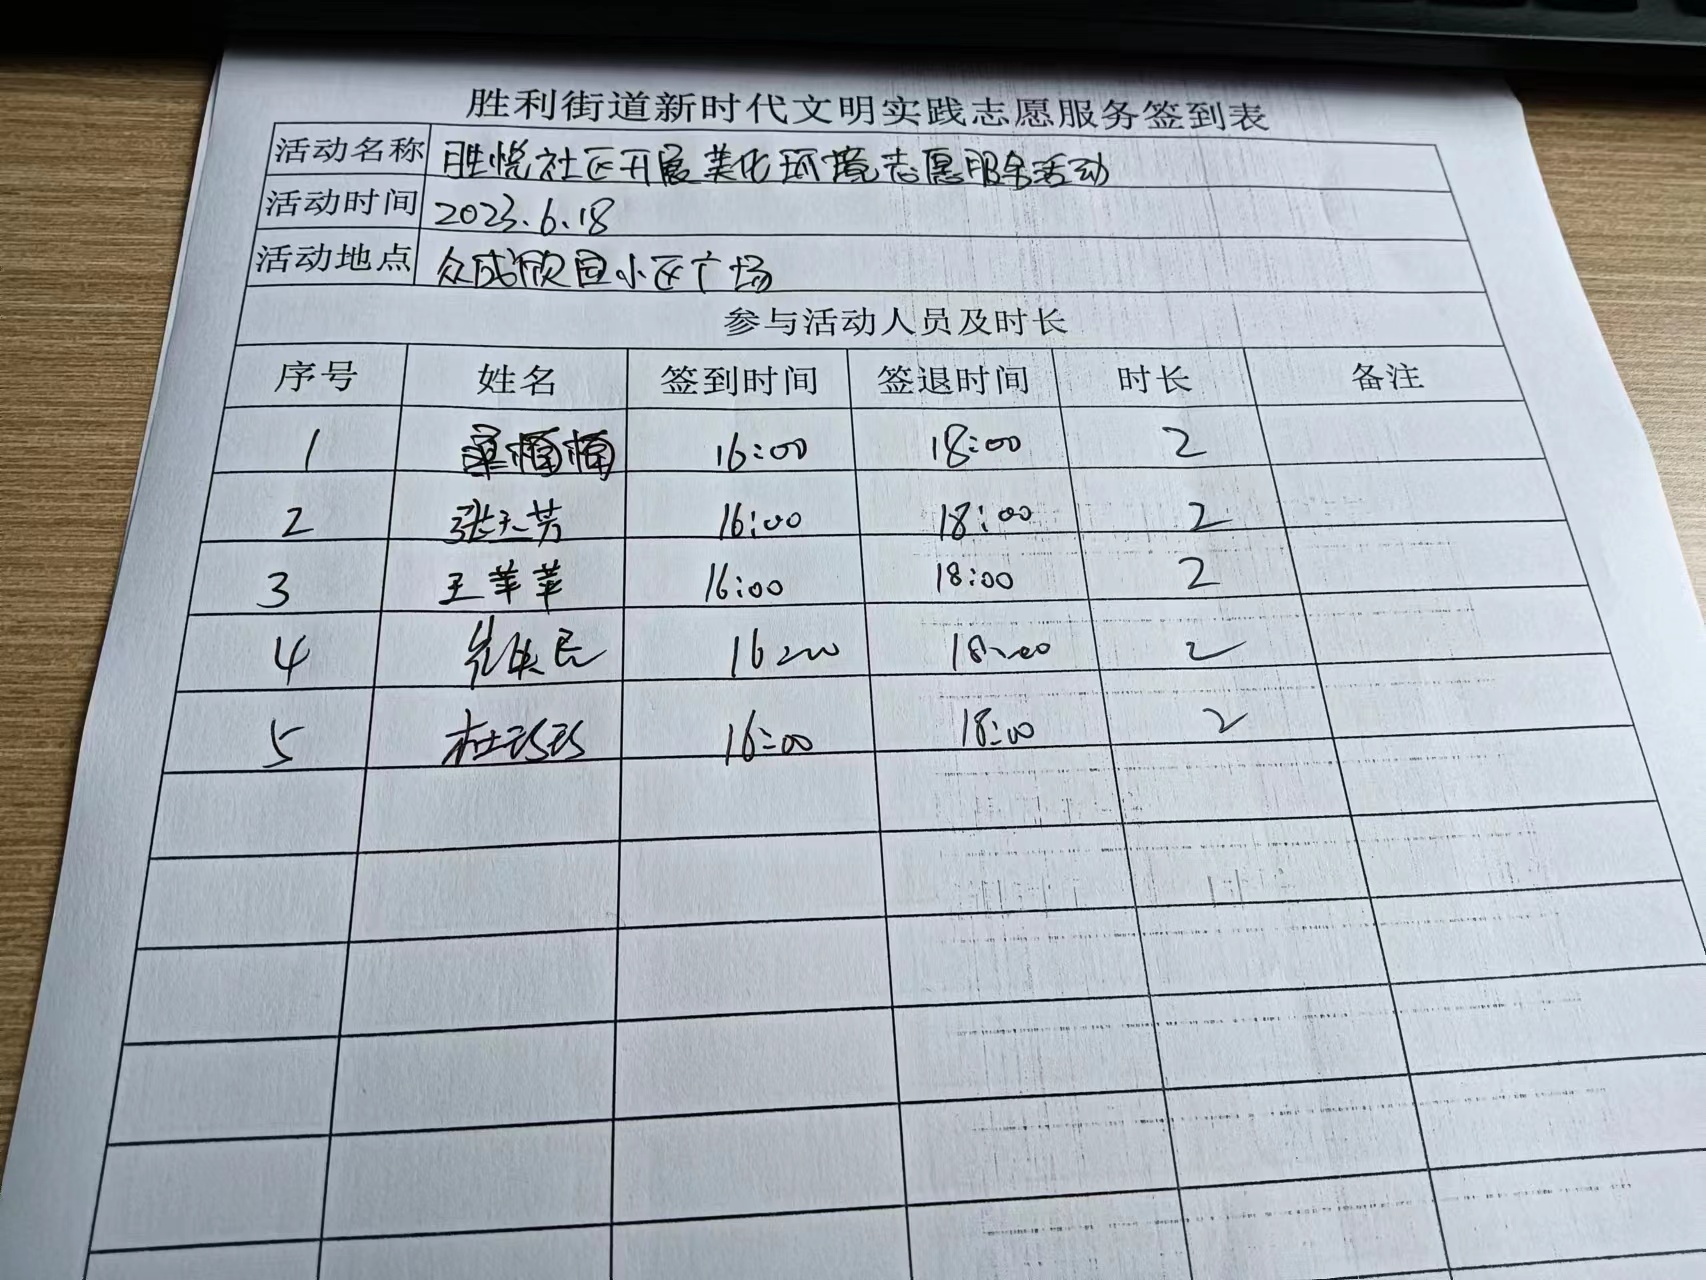 胜利街道新时代文明实践志愿服务签到表
活动名称 胜悦社区开展美化环境志愿服务活动
活动时间 2023.6.18
活动地点 众成欣园小区广场
参与活动人员及时长
序号 姓名 签到时间 签退时间 时长 备注
1 16:00 18:00 2
2 张天芳 16:00 18:00 2
3 王苹苹 16:00 18:00 2
4 16:00 18:00 2
5 杜珍珍 16:00 18:00 2